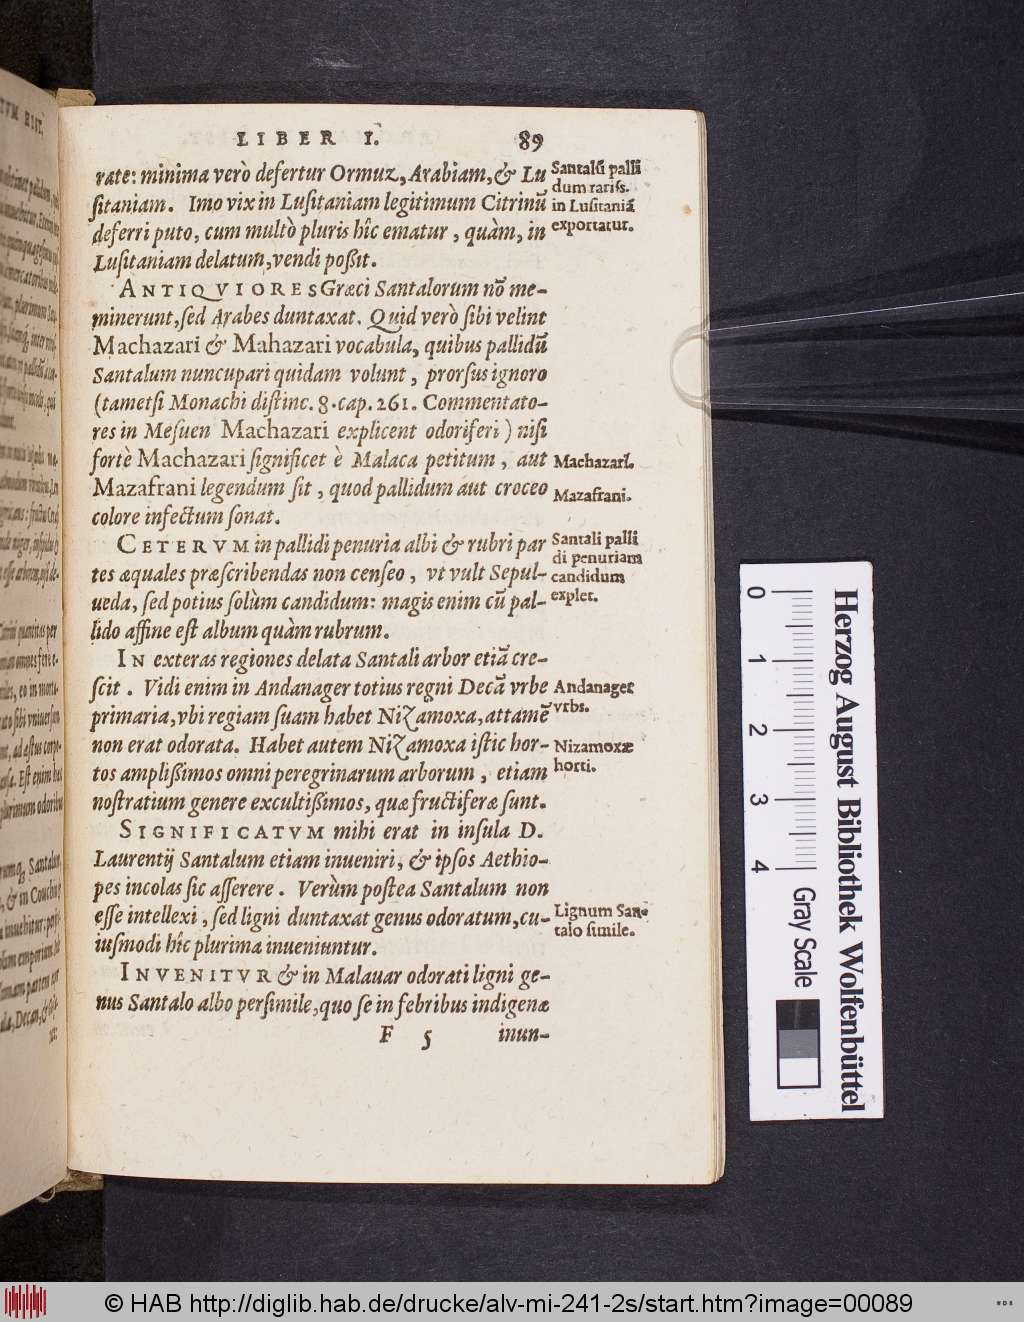 LIBER I. 89
rate: minima verò defertur Ormuz, Arabiam, & Lu
sitaniam. Imo vix in Lusitaniam legitimum Citrinũ
deferri puto, cum multò pluris hîc ematur, quàm, in
Lusitaniam delatum, vendi poßit.
Santalũ palli
dum rariss.
in Lusitaniã
exportatur.
ANTIQVIORES Græci Santalorum nõ me-
minerunt, sed Arabes duntaxat. Quid verò sibi velint
Machazari & Mahazari vocabula, quibus pallidũ
Santalum nuncupari quidam volunt, prorsus ignoro
(tametsi Monachi distinc. 8. cap. 261. Commentato-
res in Mesuen Machazari explicent odoriferi) nisi
fortè Machazari significet è Malaca petitum, aut
Mazafrani legendum sit, quod pallidum aut croceo
colore infectum sonat.
Machazari.
Mazafrani.
CETERVM in pallidi penuria albi & rubri par
tes æquales præscribendas non censeo, vt vult Sepul-
ueda, sed potius solùm candidum: magis enim cũ pal-
lido affine est album quàm rubrum.
Santali palli
di penuriam
candidum
explet.
IN exteras regiones delata Santali arbor etiã cre-
scit. Vidi enim in Andanager totius regni Decã vrbe
primaria, vbi regiam suam habet Nizamoxa, attamẽ
non erat odorata. Habet autem Nizamoxa istic hor-
tos amplißimos omni peregrinarum arborum, etiam
nostratium genere excultißimos, quæ fructiferæ sunt.
Andanager
vrbs.
Nizamoxæ
horti.
SIGNIFICATVM mihi erat in insula D.
Laurentij Santalum etiam inueniri, & ipsos Aethio-
pes incolas sic asserere. Verùm postea Santalum non
esse intellexi, sed ligni duntaxat genus odoratum, cu-
iusmodi hîc plurima inueniuntur.
Lignum San-
talo simile.
INVENITVR & in Malauar odorati ligni ge-
nus Santalo albo persimile, quo se in febribus indigenæ
F 5 inun-
0 1 2 3 4
Gray Scale
Herzog August Bibliothek Wolfenbüttel
© HAB http://diglib.hab.de/drucke/alv-mi-241-2s/start.htm?image=00089